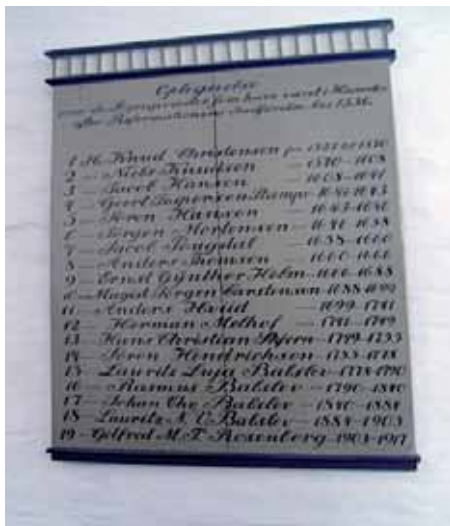 Optegnelse
over de Sognepræster som have været i
efter Reformationens Indførelse her 1536.
1 H. Knud Christensen fra 1535 til 1580
2 — Niels Knudsen — 1580–1608
3 — Jacob Hansen — 1608–1641
4 — Geert Jespersen 1641–1643
5 — Søren Hansen — 1643–1646
6 — Jørgen Mortensen — 1646–1658
7 — Jacob — 1658–1660
8 — Anders Thomsen — 1660–1666
9 — Ernst Gÿnther Holm — 1666–1688
10 — Magist Jørgen Carstensen 1688–1699
11 — Anders — 1699–1741
12 — Herman Melhof — 1741–1749
13 — Hans Christian — 1749–1755
14 — Søren Hendrichsen — 1755–1778
15 — Laurits Luja Balslev — 1778–1790
16 — Rasmus Balslev — 1790–1840
17 — Johan Balslev — 1840–1884
18 — Laurits N. C. Balslev — 1884–1903
19 — Gotfred M. T. Rosenberg 1903–1917